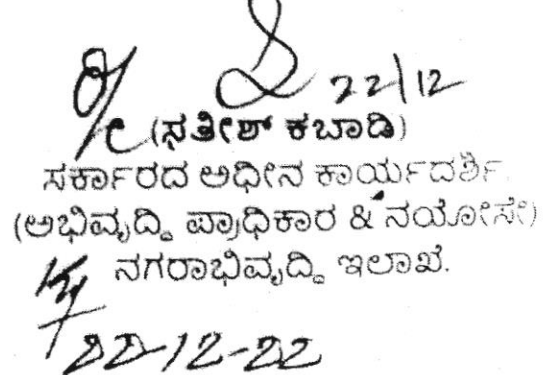 22/12
O/c (ಸತೀಶ್ ಕಬಾಡಿ)
ಸರ್ಕಾರದ ಅಧೀನ ಕಾರ್ಯದರ್ಶಿ
(ಅಭಿವೃದ್ಧಿ ಪ್ರಾಧಿಕಾರ & ನಯೋಸೇ)
ನಗರಾಭಿವೃದ್ಧಿ ಇಲಾಖೆ.
22-12-22